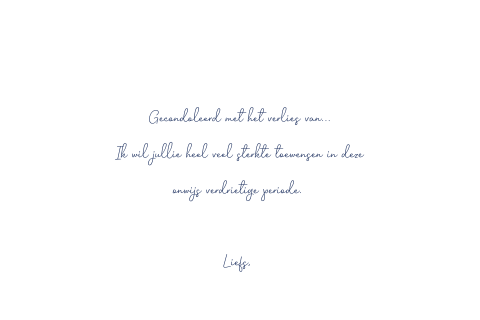 Gecondoleerd met het verlies van...
Ik wil jullie heel veel sterkte toewensen in deze
onwijs verdrietige periode.
Liefs,